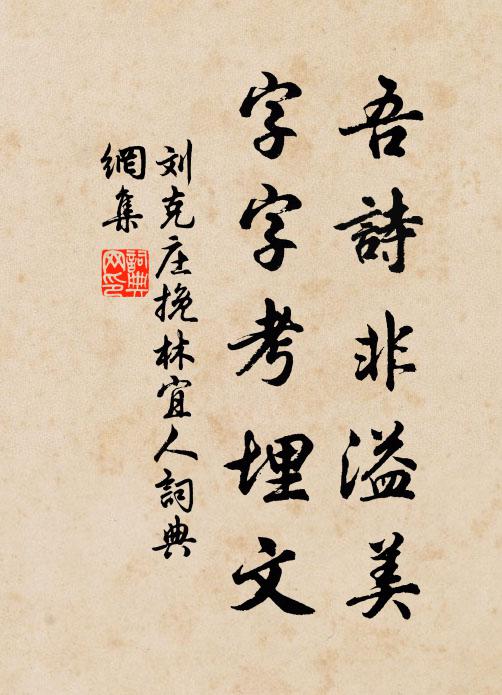 吾詩非溢美
字字考埋文
刘克庄挽林宜人詞典
網集
詞典
网印